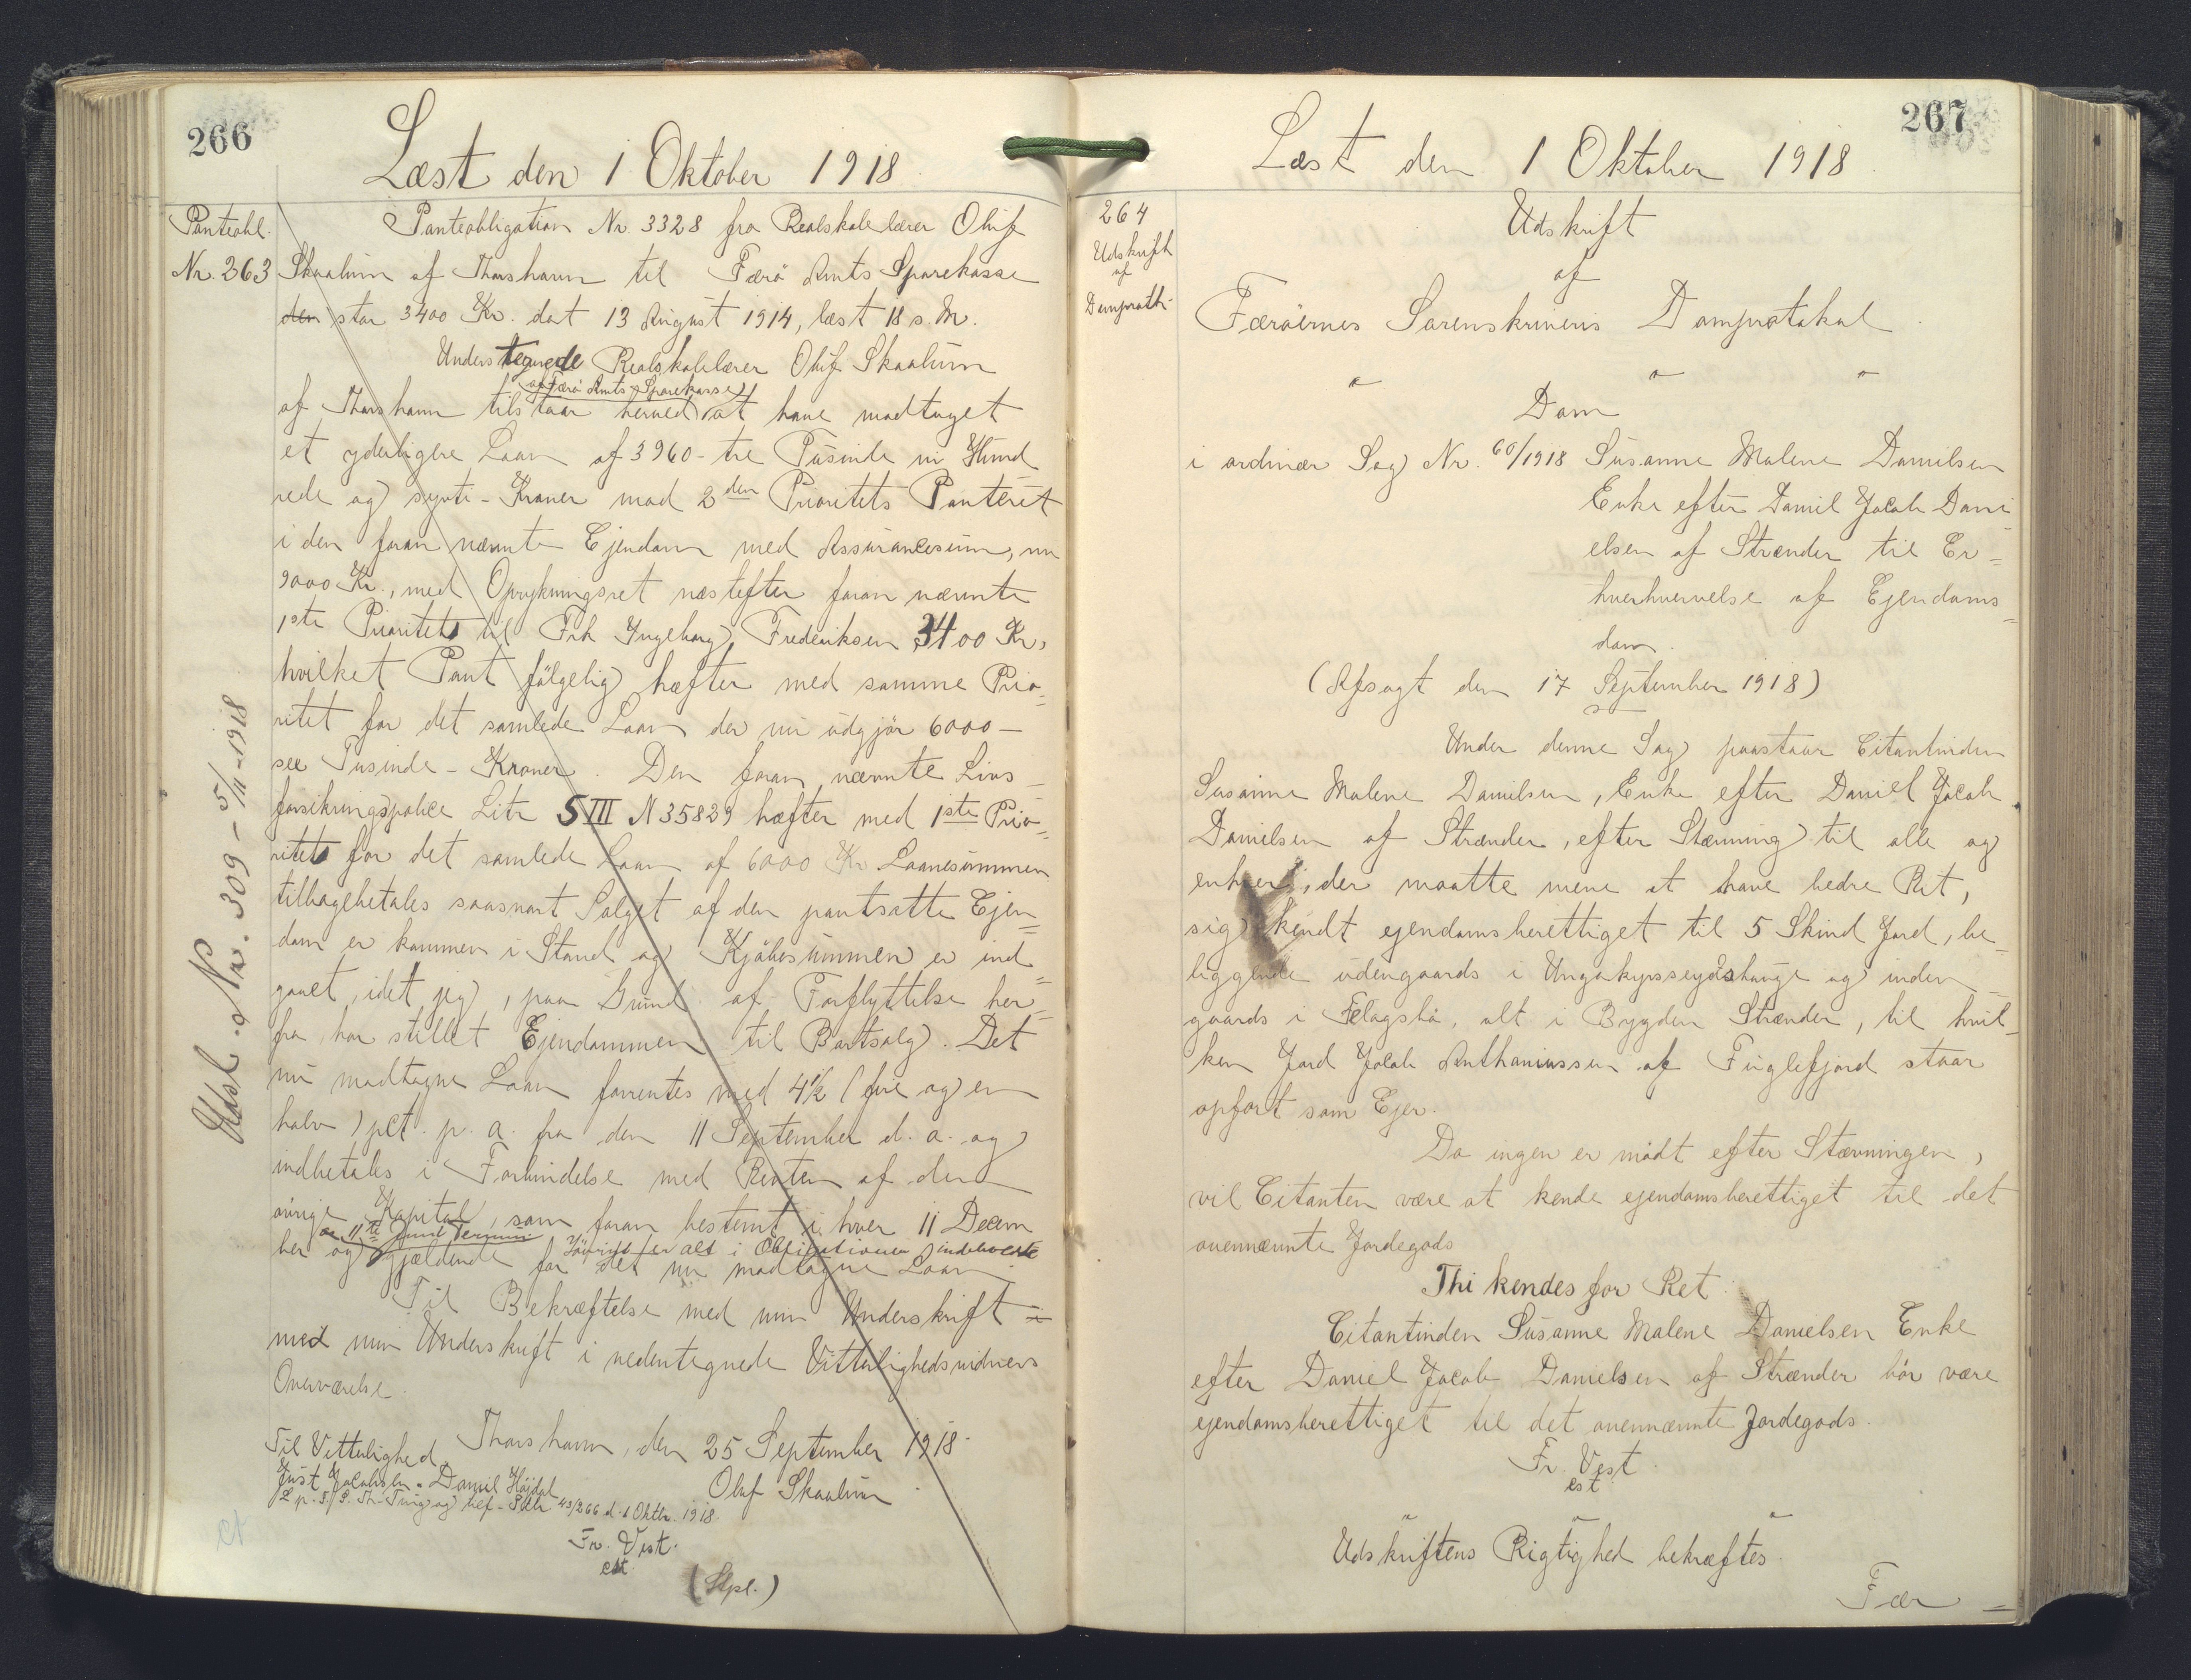 266
Læst den 1 Oktober 1918
Panteobl.
Nr. 263
Panteobligation Nr. 3328 fra Realskolelærer Oluf
Skaalum af Thorshavn til Færö Amts Sparekasse
den stor 3400 Kr. dat 13 August 1914, læst 18 s. M.
Undertegnede Realskolelærer Oluf Skaalum
af Færö Amts Sparekasse
af Thorshavn tilstaar herved at have modtaget
et yderligere Laan af 3960 - tre Tusinde ni Hund
rede og syvti - Kroner mod 2den Prioritets Panteret
i den foran nævnte Ejendom med Assurancesum, nu
9000 Kr., med Oprykningsret næstefter foran nævnte
1ste Prioritet til Frk Ingeborg Frederiksen 3400 Kr,
hvilket Pant fölgelig hæfter med samme Prio=
ritet for det samlede Laan der nu udgjör 6000 -
sex Tusinde - Kroner. Den foran nævnte Livs-
forsikringspolice Litr S III N 35829 hæfter med 1ste Prio=
ritet for det samlede Laan af 6000 Kr Laanesummen
tilbagebetales saasnart Salget af den pantsatte Ejen=
dom er kommen i Stand og Kjöbesummen er ind=
gaaet, idet jeg, paa Grund af Forflyttelse her=
fra, har stillet Ejendommen til Bortsalg. Det
nu modtagne Laan forrentes med 4½ (fire og en
halv) pct. p. a. fra den 11 September d. a. og
indbetales i Forbindelse med Renten af den
övrige Kapital, som foran bestemt i hver 11 Decem
og 11te Juni Termin. Iövrigt er alt i Obligationen indeholdte
ber og gjældende for det nu modtagne Laan.
Til Bekræftelse med min Underskrift i
med min Underskrift i nedentegnede Vitterlighedsvidners
Overværelse.
Thorshavn, den 25 September 1918.
Til Vitterlighed
Oluf Skaalum
Just Jacobsen. Daniel Höjdal
L. p. S./S. Th. Ting og bef. Pktr 43/266 d. 1 Oktbr. 1918.
Fr. Vest.
cst
(Stpl.)
Udsl. Nr. 309 - 5/11-1918
ct
267
Læst den 1 Oktober 1918
264
Udskrift
af
Domprotk.
Udskrift
af
Færöernes Sorenskriveris Domprotokol
Dom
i ordinær Sag Nr. 60/1918 Susanne Malene Danielsen
Enke efter Daniel Jacob Dani
elsen af Strænder til Er=
hverhvervelse af Ejendoms=
dom.
(Afsagt den 17 September 1918)
Under denne Sag paastaar Citantinden
Susanne Malene Danielsen, Enke efter Daniel Jacob
Danielsen af Strænder, efter Stævning til alle og
enhver, der maatte mene at have bedre Ret,
sig kendt ejendomsberettiget til 5 Skind Jord, be=
liggende udengaards i hauge og inden
gaards i alt i Bygden Strænder, til hvil=
ken Jord Jacob Anthoniussen af Fuglefjord staar
opfört som Ejer.
Da ingen er mödt efter Stævningen,
vil Citanten være at kende ejendomsberettiget til det
ovennævnte Jordegods
Thi kendes for Ret:
Citantinden Susanne Malene Danielsen Enke
efter Daniel Jacob Danielsen af Strænder bör være
ejendomsberettiget til det ovennævnte Jordegods.
Fr. Vest
cst
Udskriftens Rigtighed bekræftes.
Fær=